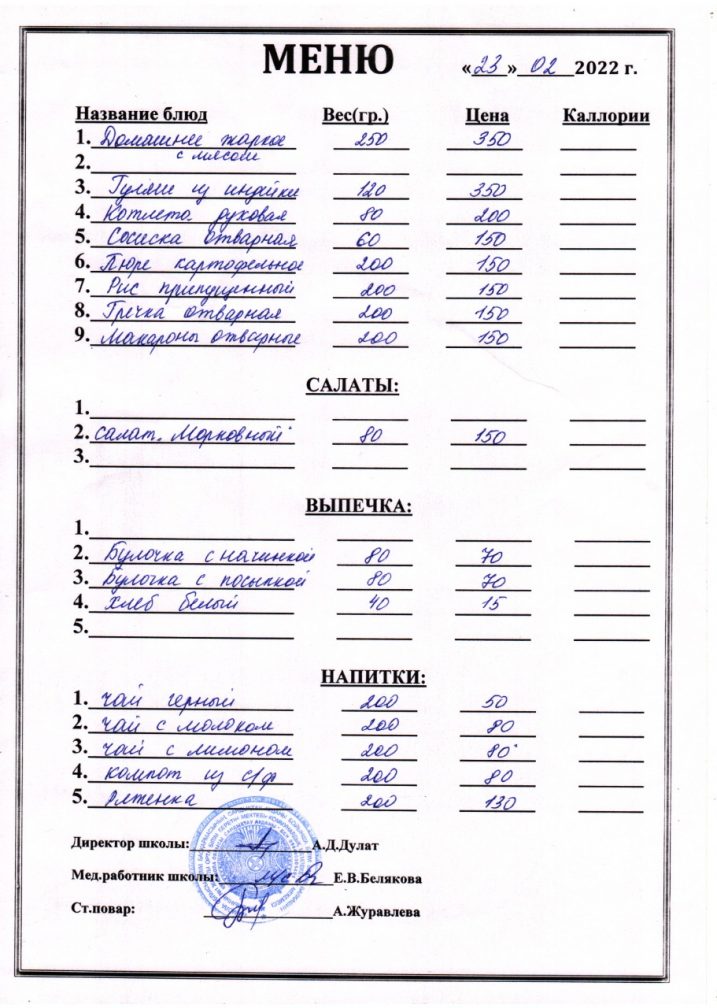 МЕНЮ «23» 02 2022 г.
Название блюд Вес(гр.) Цена Каллории
1. Домашнее жаркое 250 350
с мясом
2.
3. Гуляш из индейки 120 350
4. Котлета духовая 80 200
5. Сосиска отварная 60 150
6. Пюре картофельное 200 150
7. Рис припущенный 200 150
8. Гречка отварная 200 150
9. Макароны отварные 200 150
САЛАТЫ:
1.
2. салат. Морковный 80 150
3.
ВЫПЕЧКА:
1.
2. Булочка с начинкой 80 70
3. Булочка с посыпкой 80 70
4. Хлеб белый 40 15
5.
НАПИТКИ:
1. чай черный 200 50
2. чай с молоком 200 80
3. чай с лимоном 200 80
4. компот из с/ф 200 80
5. 200 130
Директор школы: А.Д.Дулат
Мед.работник школы: Е.В.Белякова
Ст.повар: А.Журавлева